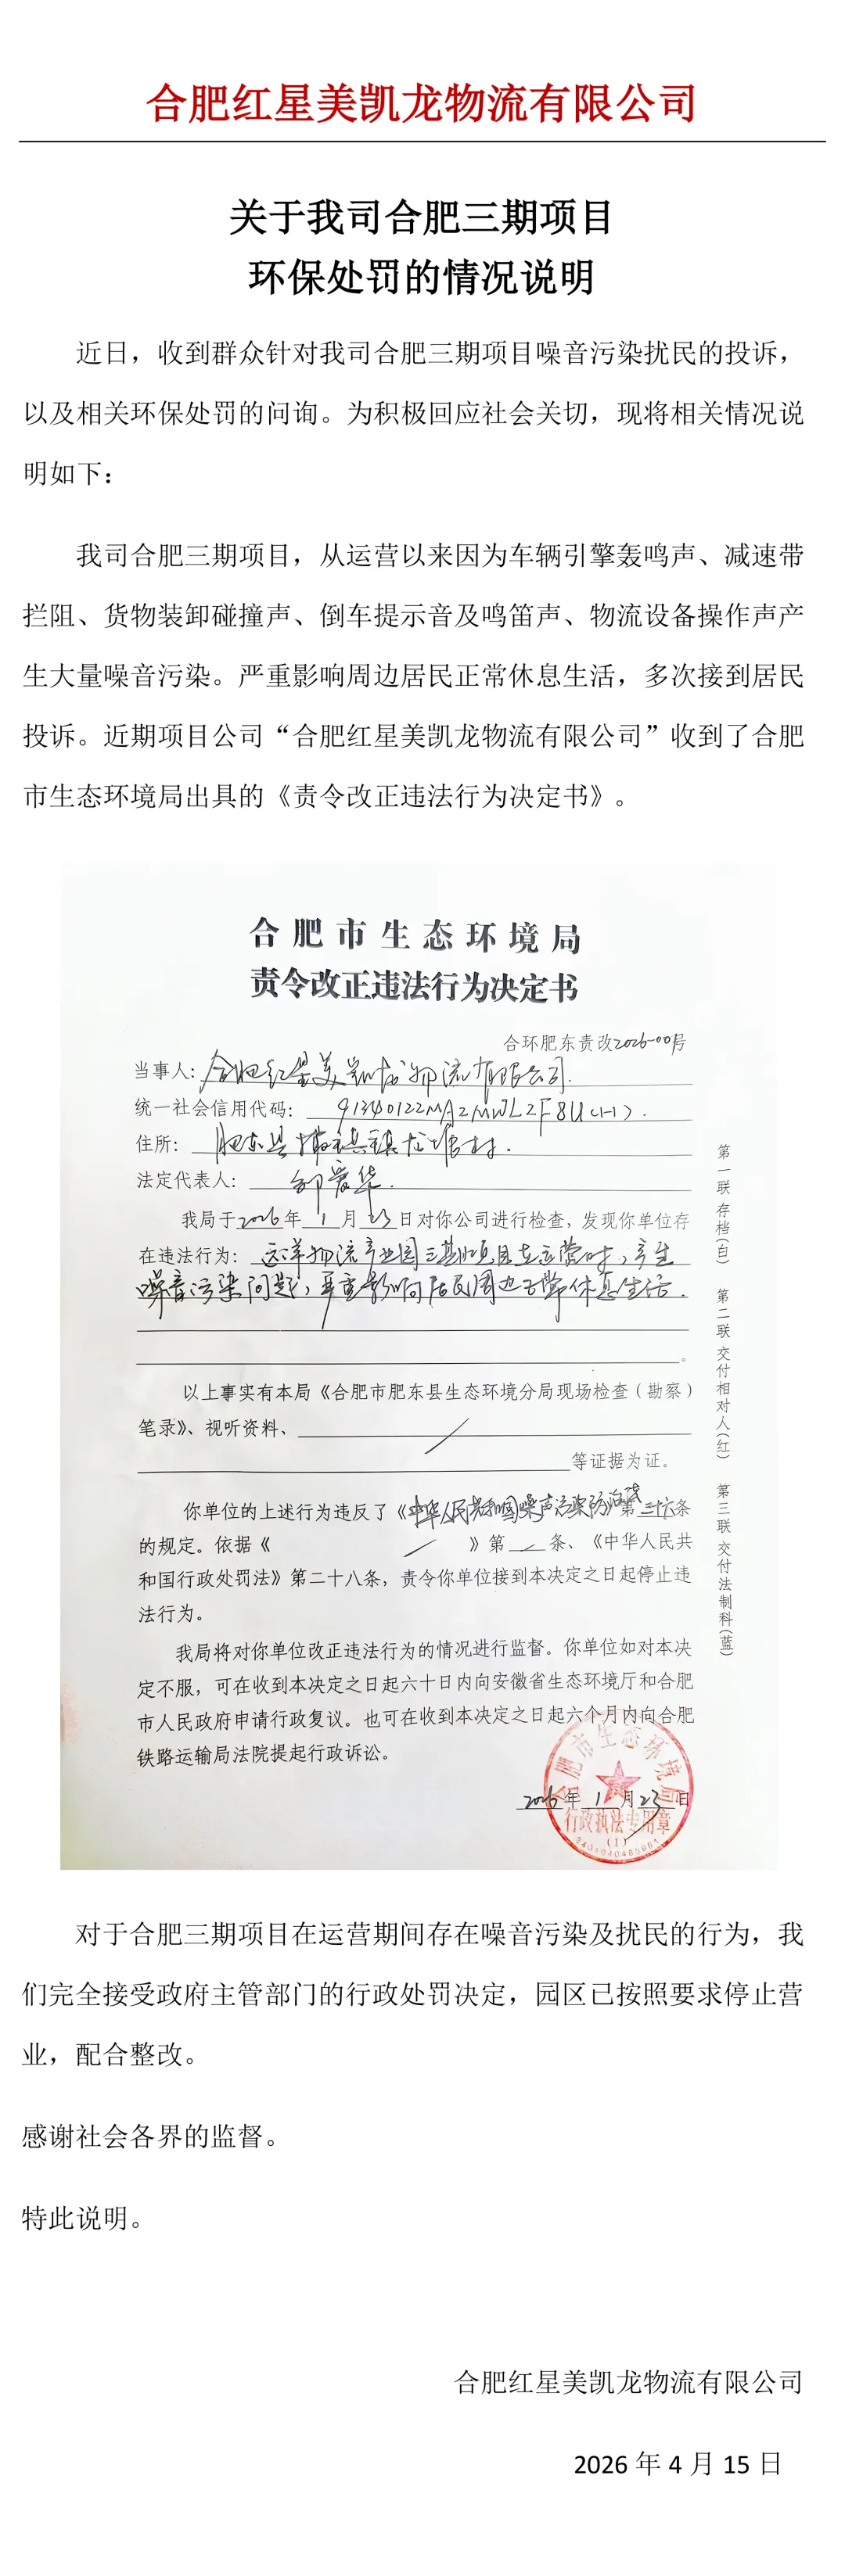 合肥红星美凯龙物流有限公司
关于我司合肥三期项目
环保处罚的情况说明
近日，收到群众针对我司合肥三期项目噪音污染扰民的投诉，
以及相关环保处罚的问询。为积极回应社会关切，现将相关情况说
明如下：
我司合肥三期项目，从运营以来因为车辆引擎轰鸣声、减速带
拦阻、货物装卸碰撞声、倒车提示音及鸣笛声、物流设备操作声产
生大量噪音污染。严重影响周边居民正常休息生活，多次接到居民
投诉。近期项目公司“合肥红星美凯龙物流有限公司”收到了合肥
市生态环境局出具的《责令改正违法行为决定书》。
合肥市生态环境局
责令改正违法行为决定书
合环肥东责改2026-001号
当事人：合肥红星美凯龙物流有限公司.
统一社会信用代码：91340122MA2MWL2F8U(1-1).
住所：肥东县撮镇镇龙塘村.
法定代表人：
我局于2026年1月23日对你公司进行检查，发现你单位存
在违法行为：远洋物流产业园三期项目在运营时，产生
噪音污染问题，严重影响居民周边正常休息生活.
。
以上事实有本局《合肥市肥东县生态环境分局现场检查（勘察）
笔录》、视听资料、
等证据为证。
你单位的上述行为违反了《中华人民共和国噪声污染防治法》第三十六条
的规定。依据《 》第 条、《中华人民共
和国行政处罚法》第二十八条，责令你单位接到本决定之日起停止违
法行为。
我局将对你单位改正违法行为的情况进行监督。你单位如对本决
定不服，可在收到本决定之日起六十日内向安徽省生态环境厅和合肥
市人民政府申请行政复议。也可在收到本决定之日起六个月内向合肥
铁路运输局法院提起行政诉讼。
2026年1月23日
合肥市生态环境局
行政执法专用章
(1)
第一联 存档(白) 第二联 交付相对人(红) 第三联 交付法制科(蓝)
对于合肥三期项目在运营期间存在噪音污染及扰民的行为，我
们完全接受政府主管部门的行政处罚决定，园区已按照要求停止营
业，配合整改。
感谢社会各界的监督。
特此说明。
合肥红星美凯龙物流有限公司
2026 年 4 月 15 日